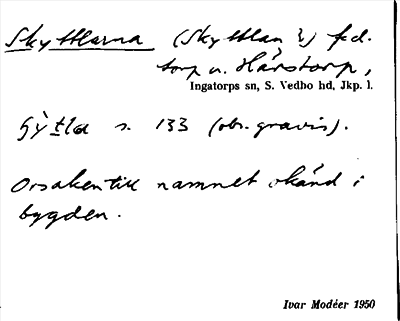 Skyttlarna (Skyttlan ?) f.d.
torp u. Hårstorp,
Ingatorps sn, S. Vedbo hd, Jkp. l.
s. 133 (obs. gravis).
Orsaken till namnet okänd i
bygden.
Ivar Modéer 1950